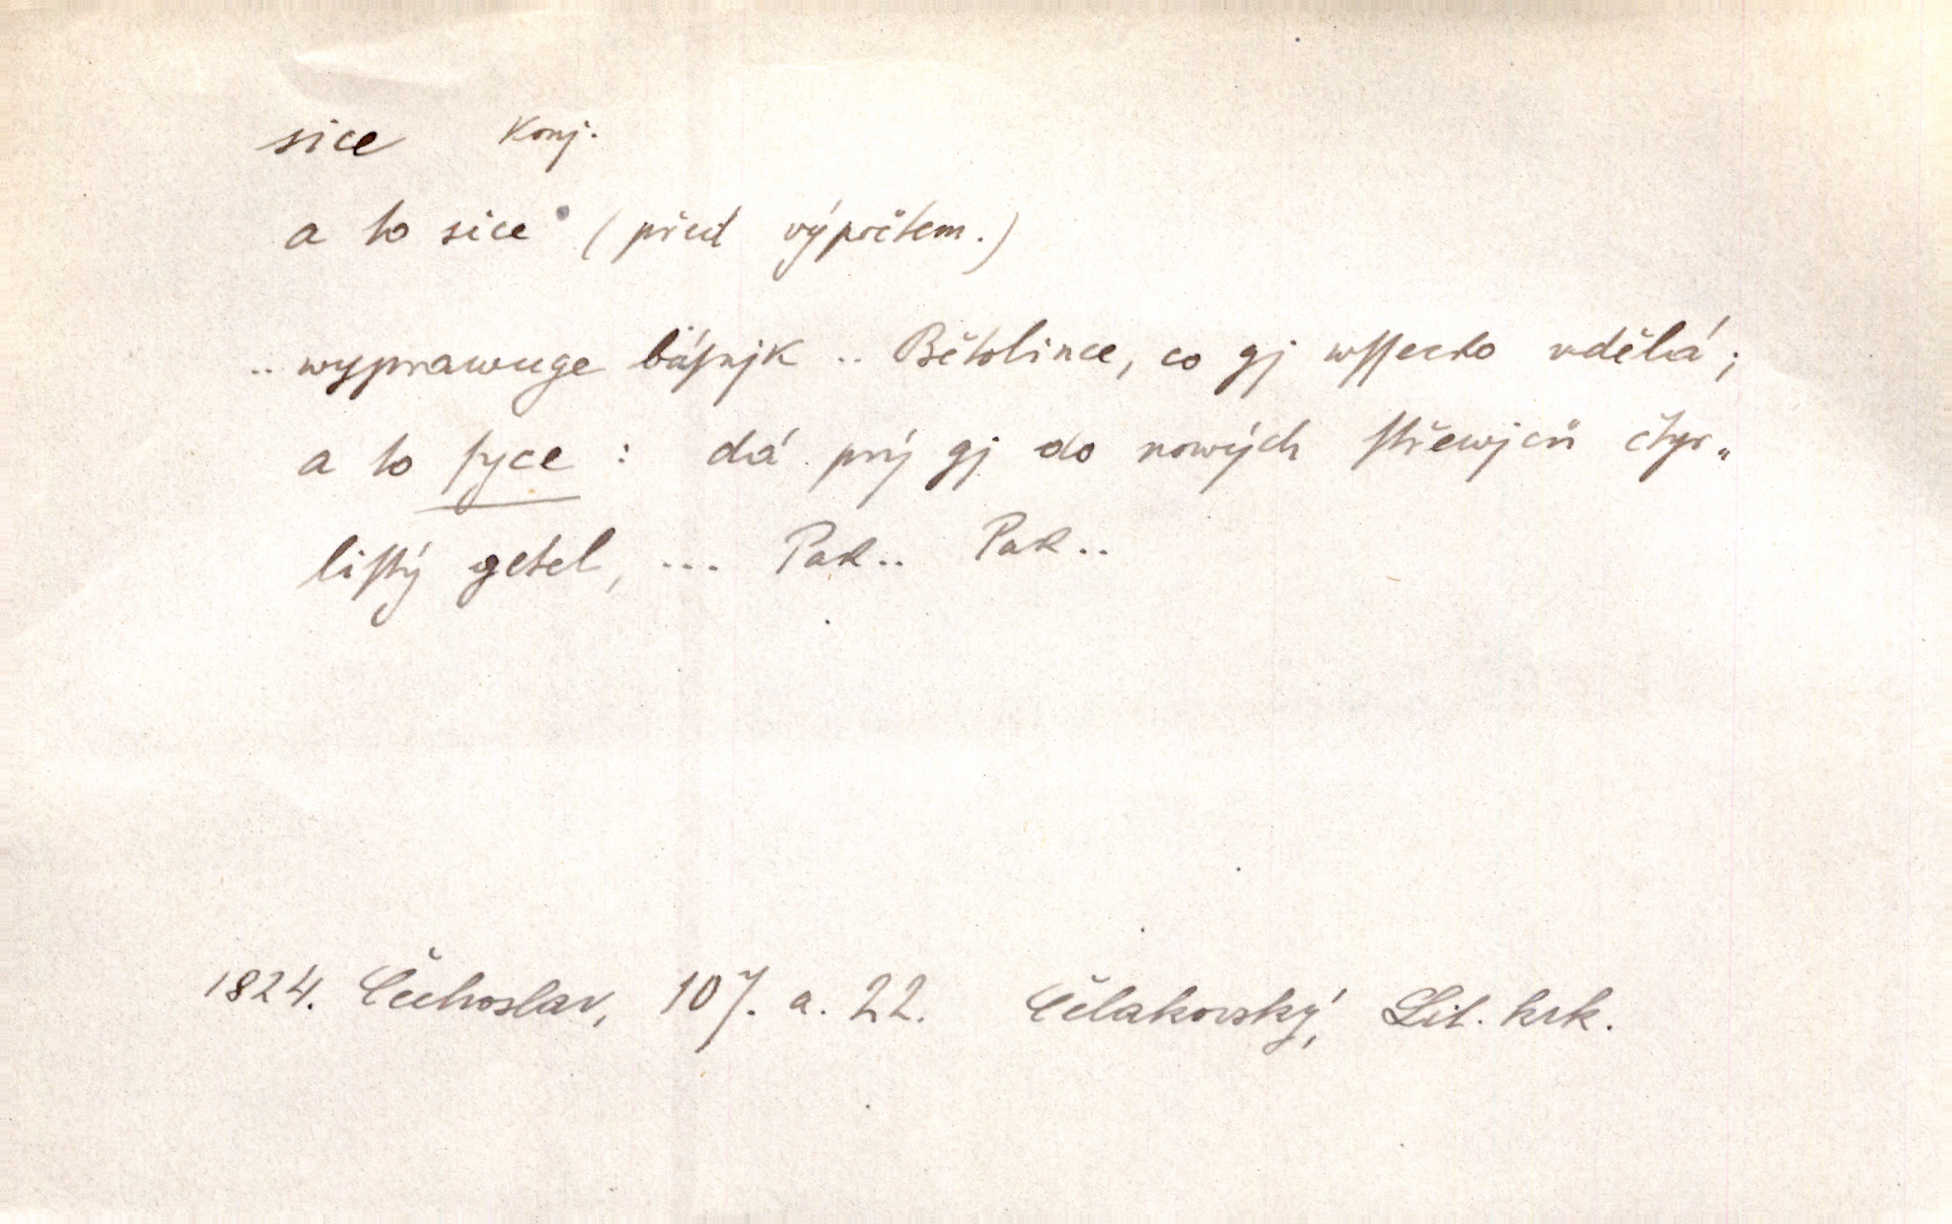 sice konj.
a to sice (před výpočtem.)
.. wyprawuge báſnjk .. Bětolince, co gj wſſecko vdělá;
a to ſyce : dá prý gj do nowých ſtřewjců čtyr„
liſtý getel, ... Pak.. Pak..
1824. Čechoslav, 107. a. 22. Čelakovský, Lit. krk.